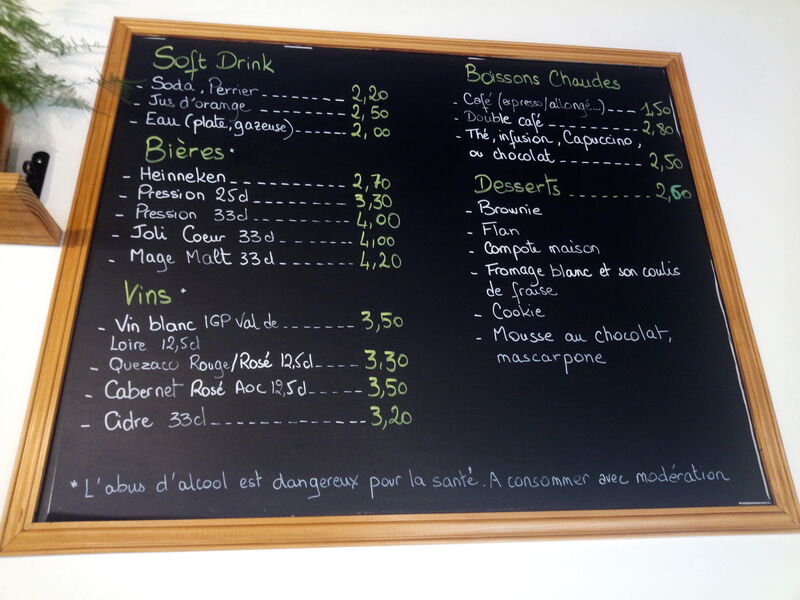 Soft Drink
- Soda, Perrier -------- 2,20
- Jus d'orange -------- 2,50
- Eau (plate, gazeuse) ------ 2,00
Bières *
- Heinneken ---------- 2,70
- Pression 25cl -------- 3,30
- Pression 33cl -------- 4,00
- Joli Coeur 33cl ------ 4,00
- Mage Malt 33cl ------ 4,20
Vins *
- Vin blanc IGP Val de ------- 3,50
Loire 12,5cl
- Quezaco Rouge/Rosé 12,5cl ---- 3,30
- Cabernet Rosé Aoc 12,5cl ---- 3,50
- Cidre 33cl ------------- 3,20
Boissons Chaudes
- Café (expresso/allongé...) --- 1,50
- Double café --------- 2,80
- Thé, infusion, Capuccino,
ou chocolat --------- 2,50
Desserts --------- 2,60
- Brownie
- Flan
- Compote maison
- Fromage blanc et son coulis
de fraise
- Cookie
- Mousse au chocolat,
mascarpone
* L'abus d'alcool est dangereux pour la santé. A consommer avec modération